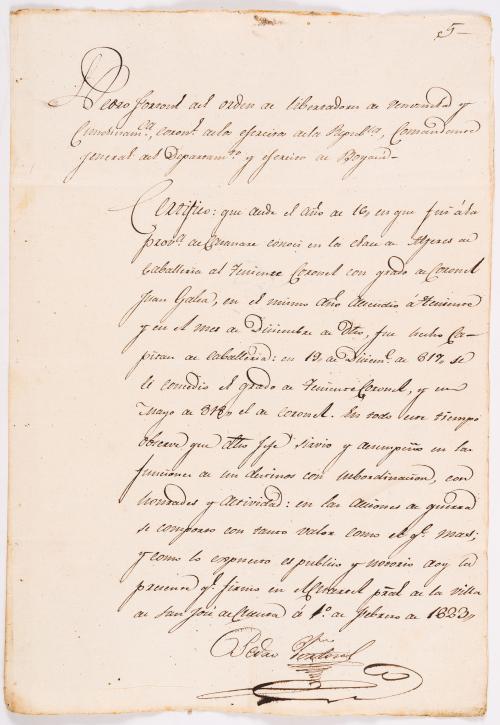 5-
Pedro Fortoul del orden de libertadores de Venezuela y
Cundinamca, coronl. de los exercitos de la Republica, Comandante
general del Departamto. y exercito de Boyacá-
Certifico: que desde el año de 16, en que fuí á la
provª. de Casanare conocí en la clase de Alferes de
Caballeria al Teniente Coronel con grado de Coronel
Juan Galea, en el mismo año Ascendio á Teniente
y en el mes de Diciembre de dho, fue hecho Ca-
pitan de caballeria: en 19, de Diciemº. de 817, se
le concedio el grado de Teniente Coronel, y en
Mayo de 818, el de coronel. En todo este tiempo
observé que dho Jefe sirvio y desempeñó en las
funciones de un destinos con subordinacion, con
honradez y actividad: en las acciones de guerra
se comportó con tanto valor como el qe. mas;
y como lo expuesto es publico y notorio doy la
presente qe. firmo en el Quartel pral. de la Villa
de San José de Cucuta á 1º. de Febrero de 1823,
Pedro Fortoul